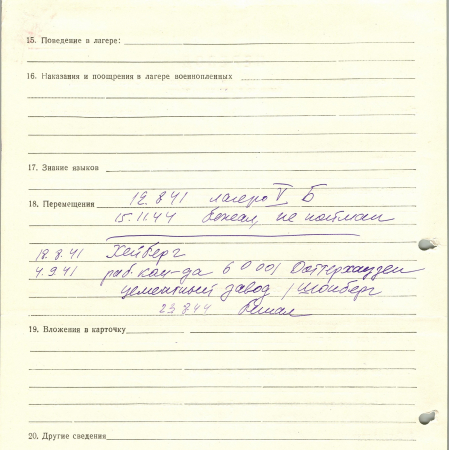 15. Поведение в лагере:
16. Наказания и поощрения в лагере военнопленных
17. Знание языков
18. Перемещения 12.8.41 лагерь V Б
15.11.44 бежал, не пойман
12.8.41 Хейберг
4.9.41 раб. ком-да 6 0001 Доттерхаузен
цементный завод / Шомберг
23.8.44 бежал
19. Вложения в карточку
20. Другие сведения